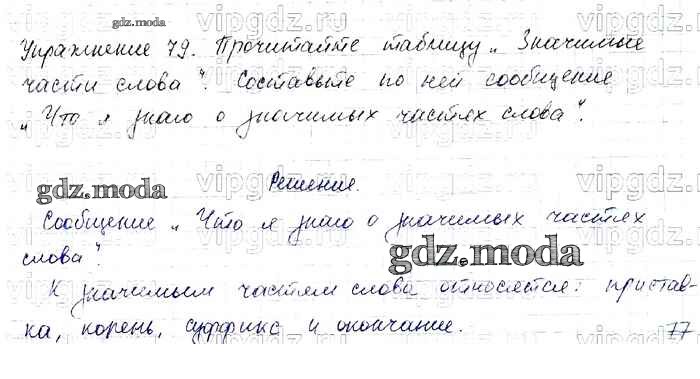 gdz.moda
Упражнение 79. Прочитайте таблицу „Значимые
части слова". Составьте по ней сообщение
„Что я знаю о значимых частях слова".
vipgdz.ru
gdz.moda
Решение.
Сообщение „Что я знаю о значимых частях
слова".
gdz.moda
К значимым частям слова относятся: пристав-
ка, корень, суффикс и окончание.
77